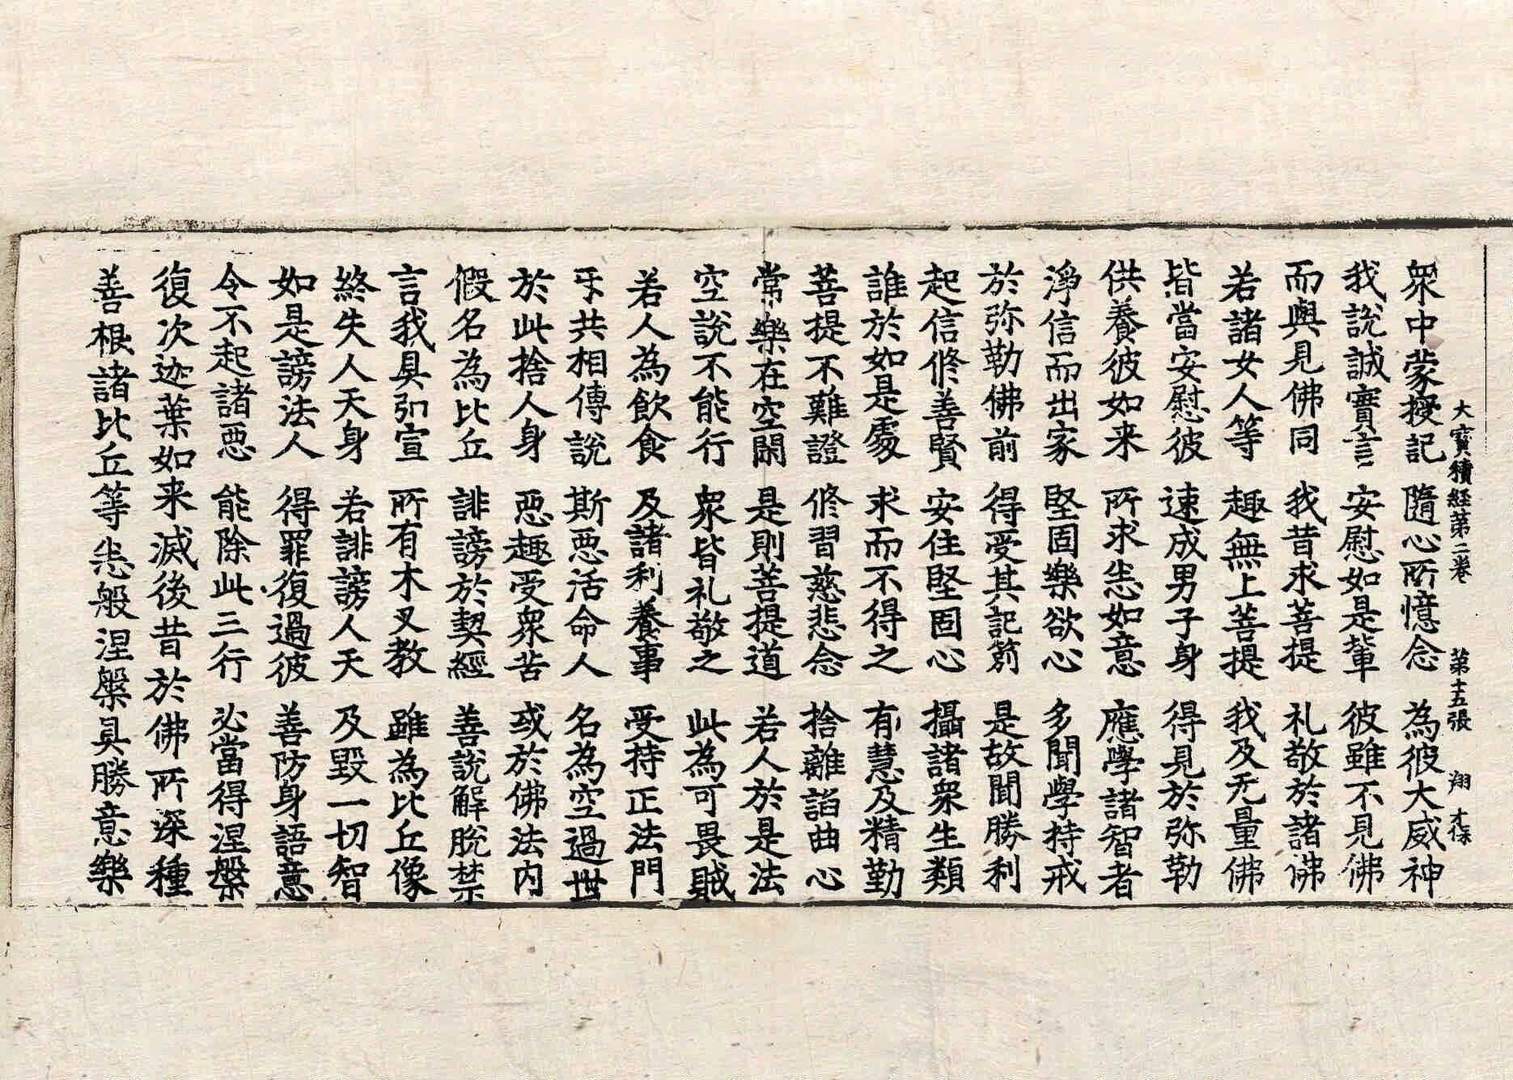 大寶積經第二卷　第十五張　翔
衆中蒙授記　隨心所憶念　為彼大威神
我說誠實言　安慰如是輩　彼雖不見佛
而與見佛同　我昔求菩提　礼敬於諸佛
若諸女人等　趣無上菩提　我及无量佛
皆當安慰彼　速成男子身　得見於弥勒
供養彼如来　所求悉如意　應學諸智者
淨信而出家　堅固樂欲心　多聞學持戒
於弥勒佛前　得受其記莂　是故聞勝利
起信修善賢　安住堅固心　攝諸衆生類
誰於如是處　求而不得之　有慧及精勤
菩提不難證　修習慈悲念　捨離諂曲心
常樂在空閑　是則菩提道　若人於是法
空說不能行　衆皆礼敬之　此為可畏賊
若人為飲食　及諸利養事　受持正法門
𠄔共相傳說　斯惡活命人　名為空過世
於此捨人身　惡趣受衆苦　或於佛法内
假名為比丘　誹謗於契經　善說解脫禁
言我具弘宣　所有木叉教　雖為比丘像
終失人天身　若誹謗人天　及毀一切智
如是謗法人　得罪復過彼　善防身語意
令不起諸惡　能除此三行　必當得涅槃
復次迦葉如来滅後昔於佛所深種
善根諸比丘等悉般涅槃具勝意樂